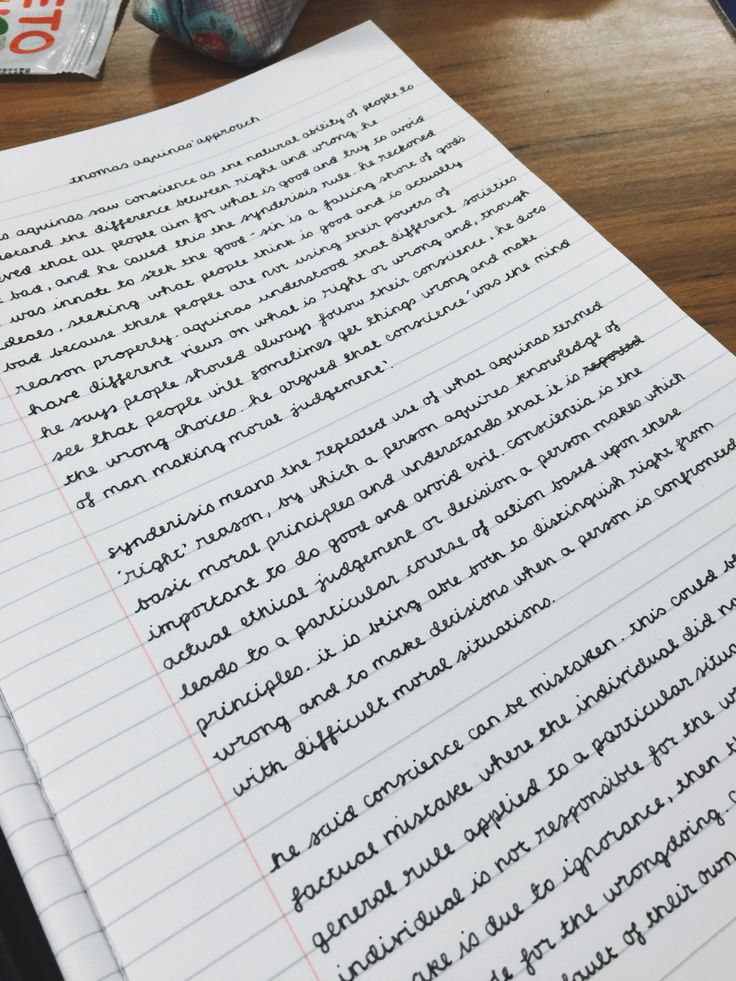 ETO
thomas aquinas' approach
aquinas saw conscience as the natural ability of people to
the difference between right and wrong. he
that all people aim for what is good and try to avoid
bad, and he called this the synderisis rule. he reckoned
was innate to seek the good - sin is a falling short of god's
ideals, seeking what people think is good and is actually
bad because these people are not using their powers of
reason properly. aquinas understood that different societies
have different views on what is right or wrong and, though
he says people should always follow their conscience, he does
see that people will sometimes get things wrong and make
the wrong choices. he argued that conscience 'was the mind
of man making moral judgement'.
synderisis means the repeated use of what aquinas termed
'right' reason, by which a person aquires knowledge of
basic moral principles and understands that it is reported
important to do good and avoid evil. conscientia is the
actual ethical judgement or decision a person makes which
leads to a particular course of action based upon these
principles. it is being able both to distinguish right from
wrong and to make decisions when a person is confronted
with difficult moral situations.
he said conscience can be mistaken. this could be
factual mistake where the individual did no
general rule applied to a particular situa
individual is not responsible for the w
ake is due to ignorance, then th
for the wrongdoing.
fault of their own